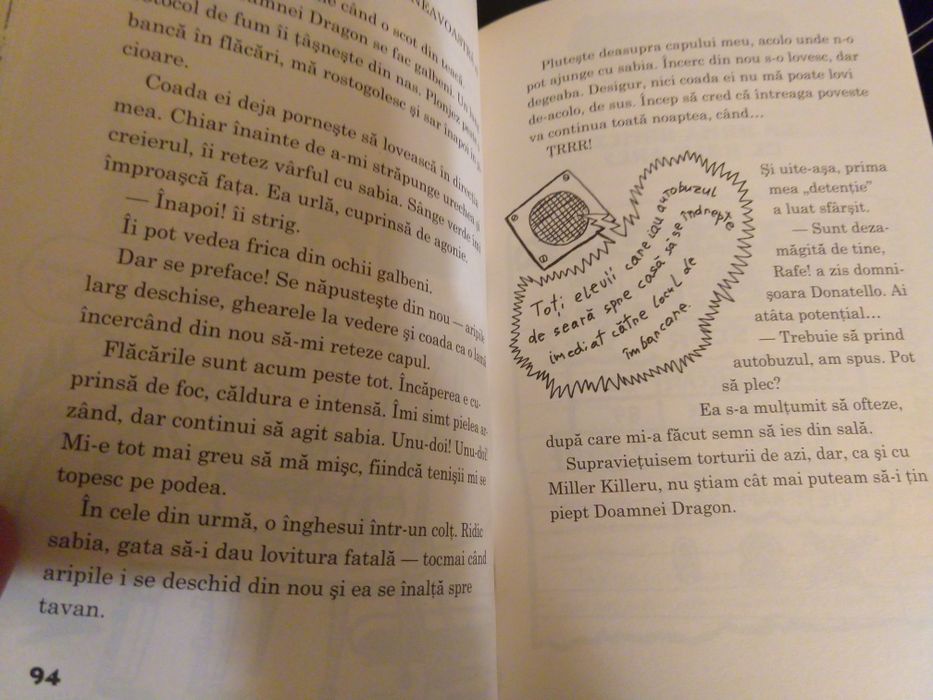 NEAVOASTRĂ
când o scot din teacă.
Doamnei Dragon se fac galbeni. Un
de fum îi țâșnește din nas. Plonjez
bancă în flăcări, mă rostogolesc și sar înapoi în
cioare.
Coada ei deja pornește să lovească în direcția
mea. Chiar înainte de a-mi străpunge urechea și
creierul, îi retez vârful cu sabia. Sânge verde îmi
împroașcă fața. Ea urlă, cuprinsă de agonie.
— Înapoi! îi strig.
Îi pot vedea frica din ochii galbeni.
Dar se preface! Se năpustește din nou — aripile
larg deschise, ghearele la vedere și coada ca o
încercând din nou să-mi reteze capul.
Flăcările sunt acum peste tot. Încăperea e cu-
prinsă de foc, căldura e intensă. Îmi simt pielea ar-
zând, dar continui să agit sabia. Unu-doi! Unu-doi!
Mi-e tot mai greu să mă mișc, fiindcă tenișii mi se
topesc pe podea.
În cele din urmă, o înghesui într-un colț. Ridic
sabia, gata să-i dau lovitura fatală — tocmai când
aripile i se deschid din nou și ea se înalță spre
tavan.
94
Plutește deasupra capului meu, acolo unde n-o
pot ajunge cu sabia. Încerc din nou s-o lovesc, dar
degeaba. Desigur, nici coada ei nu mă poate lovi
de-acolo, de sus. Încep să cred că întreaga poveste
va continua toată noaptea, când...
TRRR!
Toți elevii care iau autobuzul
de seară spre casă să se îndrepte
imediat către locul de
îmbarcare.
Și uite-așa, prima
mea „detenție”
a luat sfârșit.
— Sunt deza-
măgită de tine,
Rafe! a zis domni-
șoara Donatello. Ai
atâta potențial...
— Trebuie să prind
autobuzul, am spus. Pot
să plec?
Ea s-a mulțumit să ofteze,
după care mi-a făcut semn să ies din sală.
Supraviețuisem torturii de azi, dar, ca și cu
Miller Killeru, nu știam cât mai puteam să-i țin
piept Doamnei Dragon.